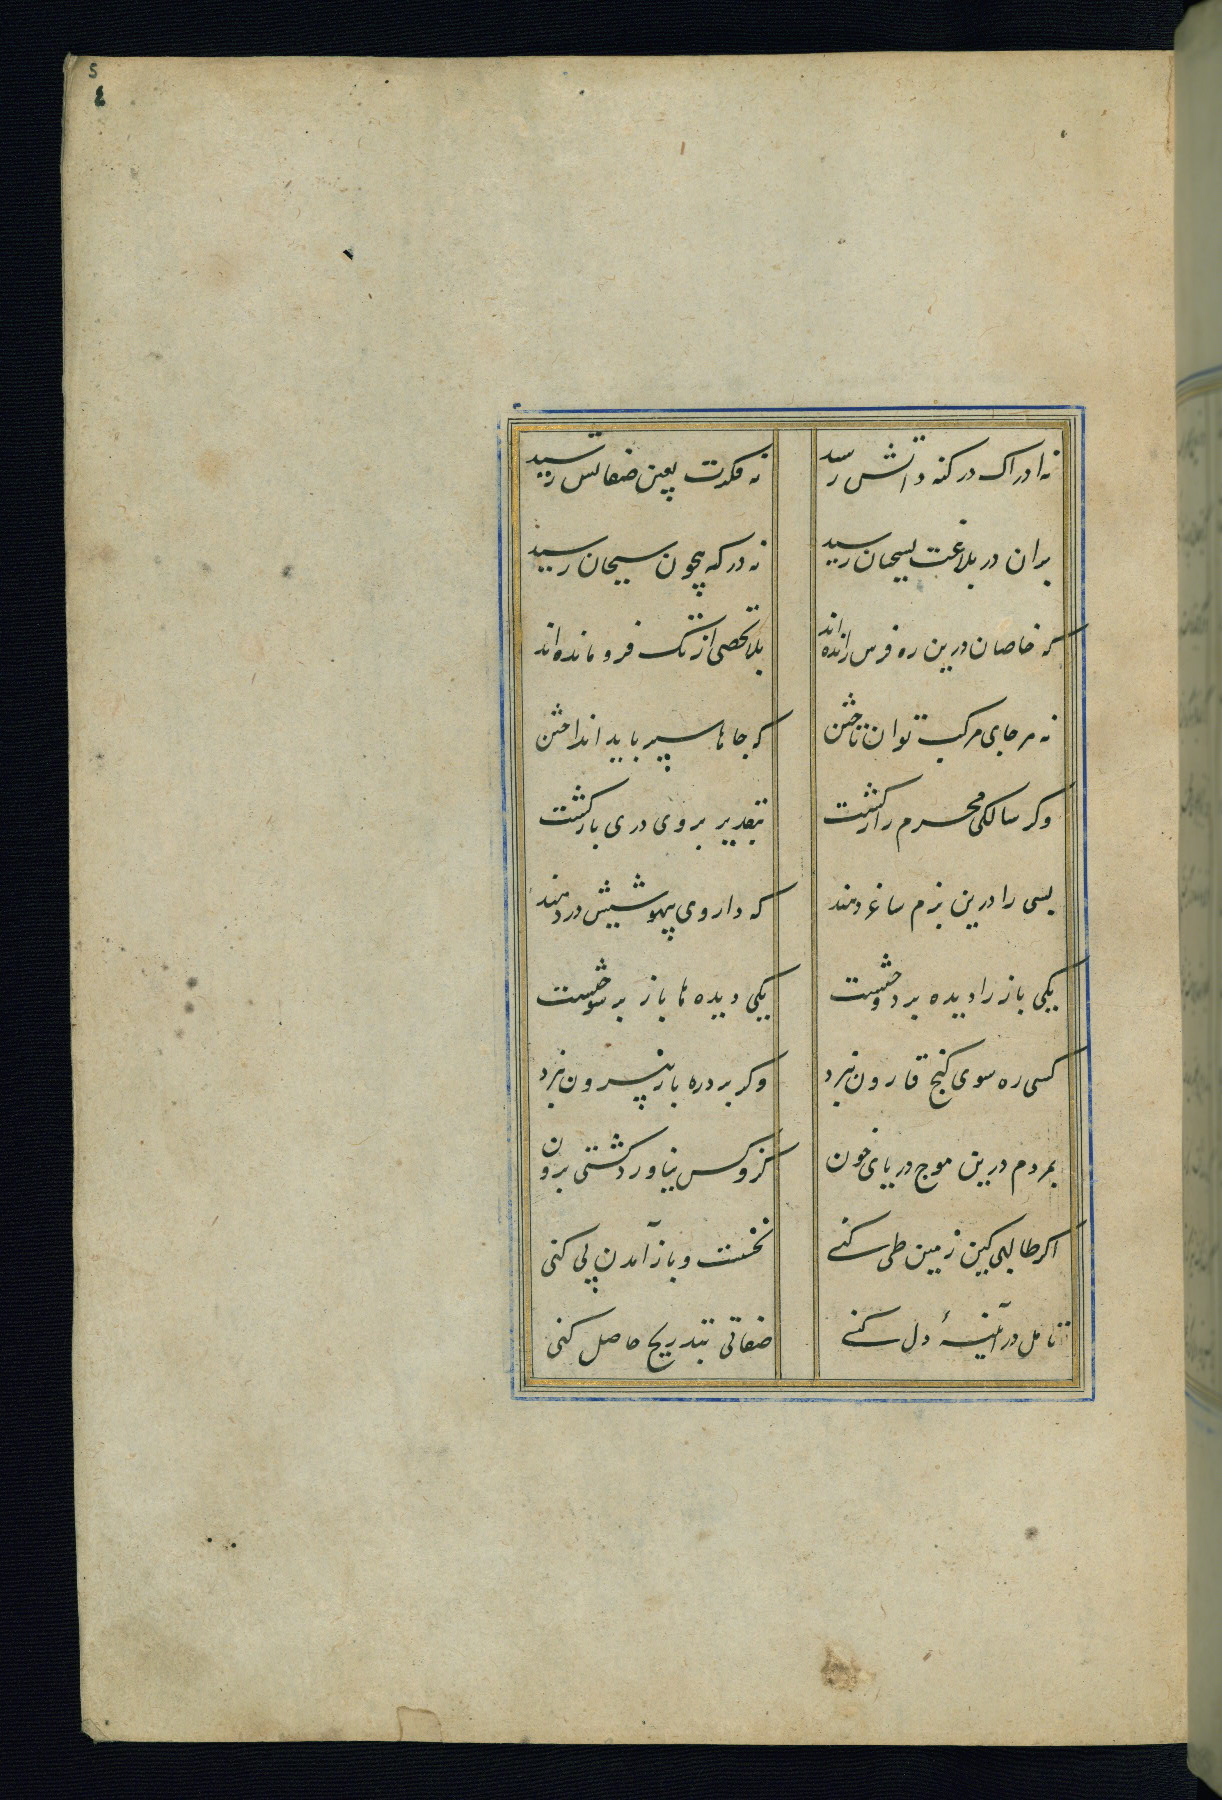 5
٤
نه ادراک در کنه ذاتش رسد نه فکرت بغین صفاتش رسید
بران در بلاغت بسحبان رسید نه در که بیچون سبحان رسید
که خاصان درین ره فرس رانده اند بلا تحصی از تک فرو مانده اند
نه هر جای مرکب توان تاختن که جاها سپر باید انداختن
وکر سالکی محرم راز کشت بتقدیر بروی در باز کشت
بسی را درین بزم ساغر دهند که داروی بیهوشیش در دهند
یکی باز را دیده بر دوختست یکی دیده ها باز بر سوختست
کسی ره سوی کنج قارون نبرد وکر برد ره باز بیرون نبرد
بمردم درین موج دریای خون کزو کس نیاورد کشتی برون
اکر طالبی کین زمین طی کنے نخست و باز آمدن پی کنی
تامل در آئینهٔ دل کنے صفاتی بتدریج حاصل کنی